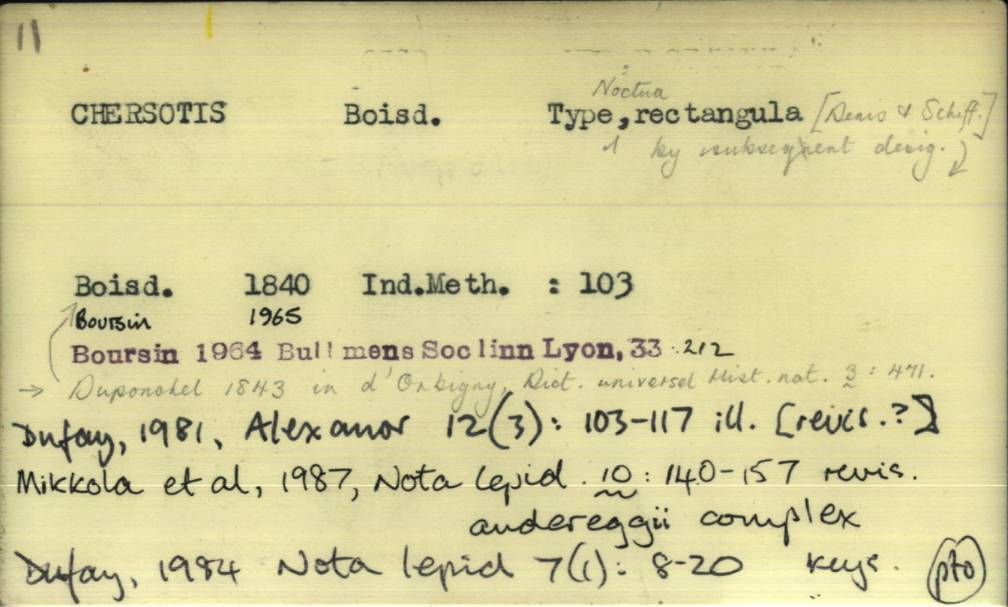 11
Noctua
CHERSOTIS Boisd. Type, rectangula [Denis & Schiff.]
by subsequent desig.
Boisd. 1840 Ind.Meth. : 103
Boursin 1965
Boursin 1964 Bull mens Soc linn Lyon, 33 : 212
→ Duponchel 1843 in d'Orbigny, Dict. universel Hist. nat. 3 : 471.
Dufay, 1981, Alexanor 12(3): 103-117 ill. [revis.?]
Mikkola et al, 1987, Nota lepid. 10 : 140-157 revis.
andereggii complex
Dufay, 1984 Nota lepid 7(1): 8-20 keys. pto